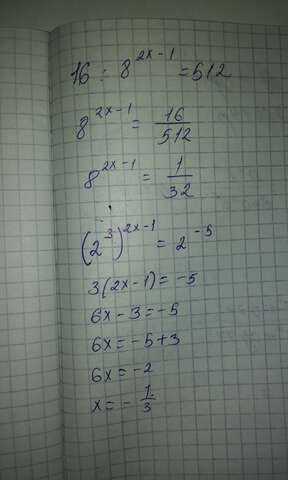 16 : 8^(2x-1) = 512
8^(2x-1) = 16/512
8^(2x-1) = 1/32
(2^3)^(2x-1) = 2^(-5)
3(2x-1) = -5
6x - 3 = -5
6x = -5+3
6x = -2
x = - 1/3